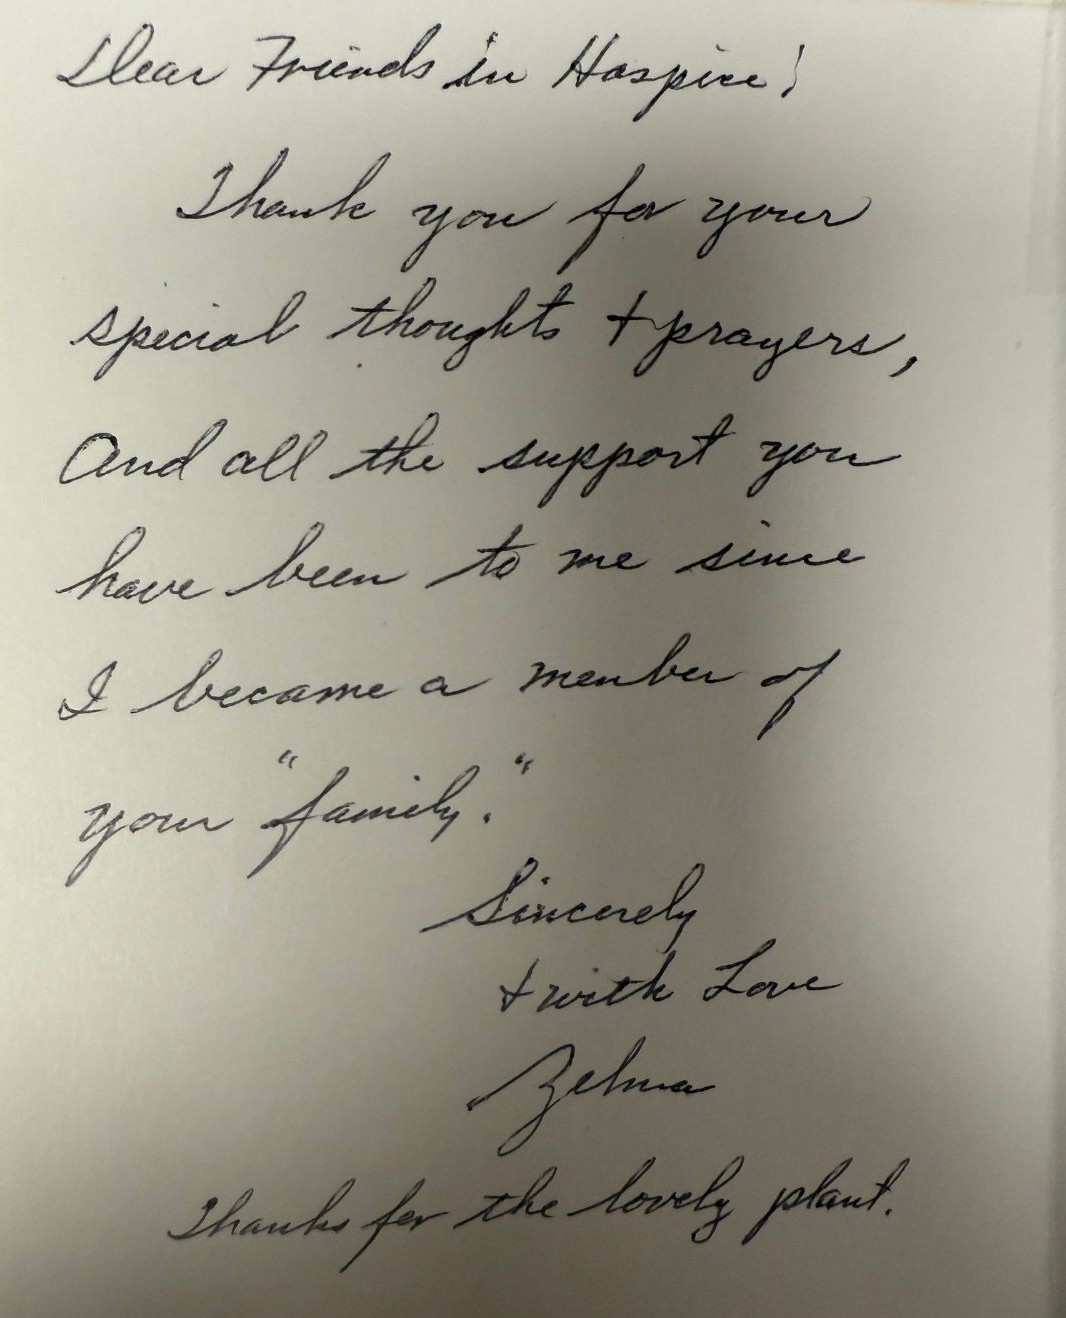 Dear Friends in Hospice!
Thank you for your
special thoughts + prayers,
And all the support you
have been to me since
I became a member of
your "family."
Sincerely
+ with Love
Zelma
Thanks for the lovely plant.